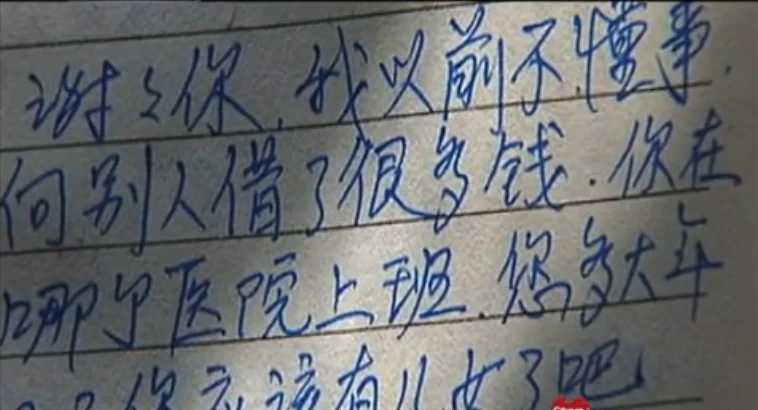 谢々你.我以前不懂事.
向别人借了很多钱.你在
哪个医院上班.您多大年
你应该有儿女了吧